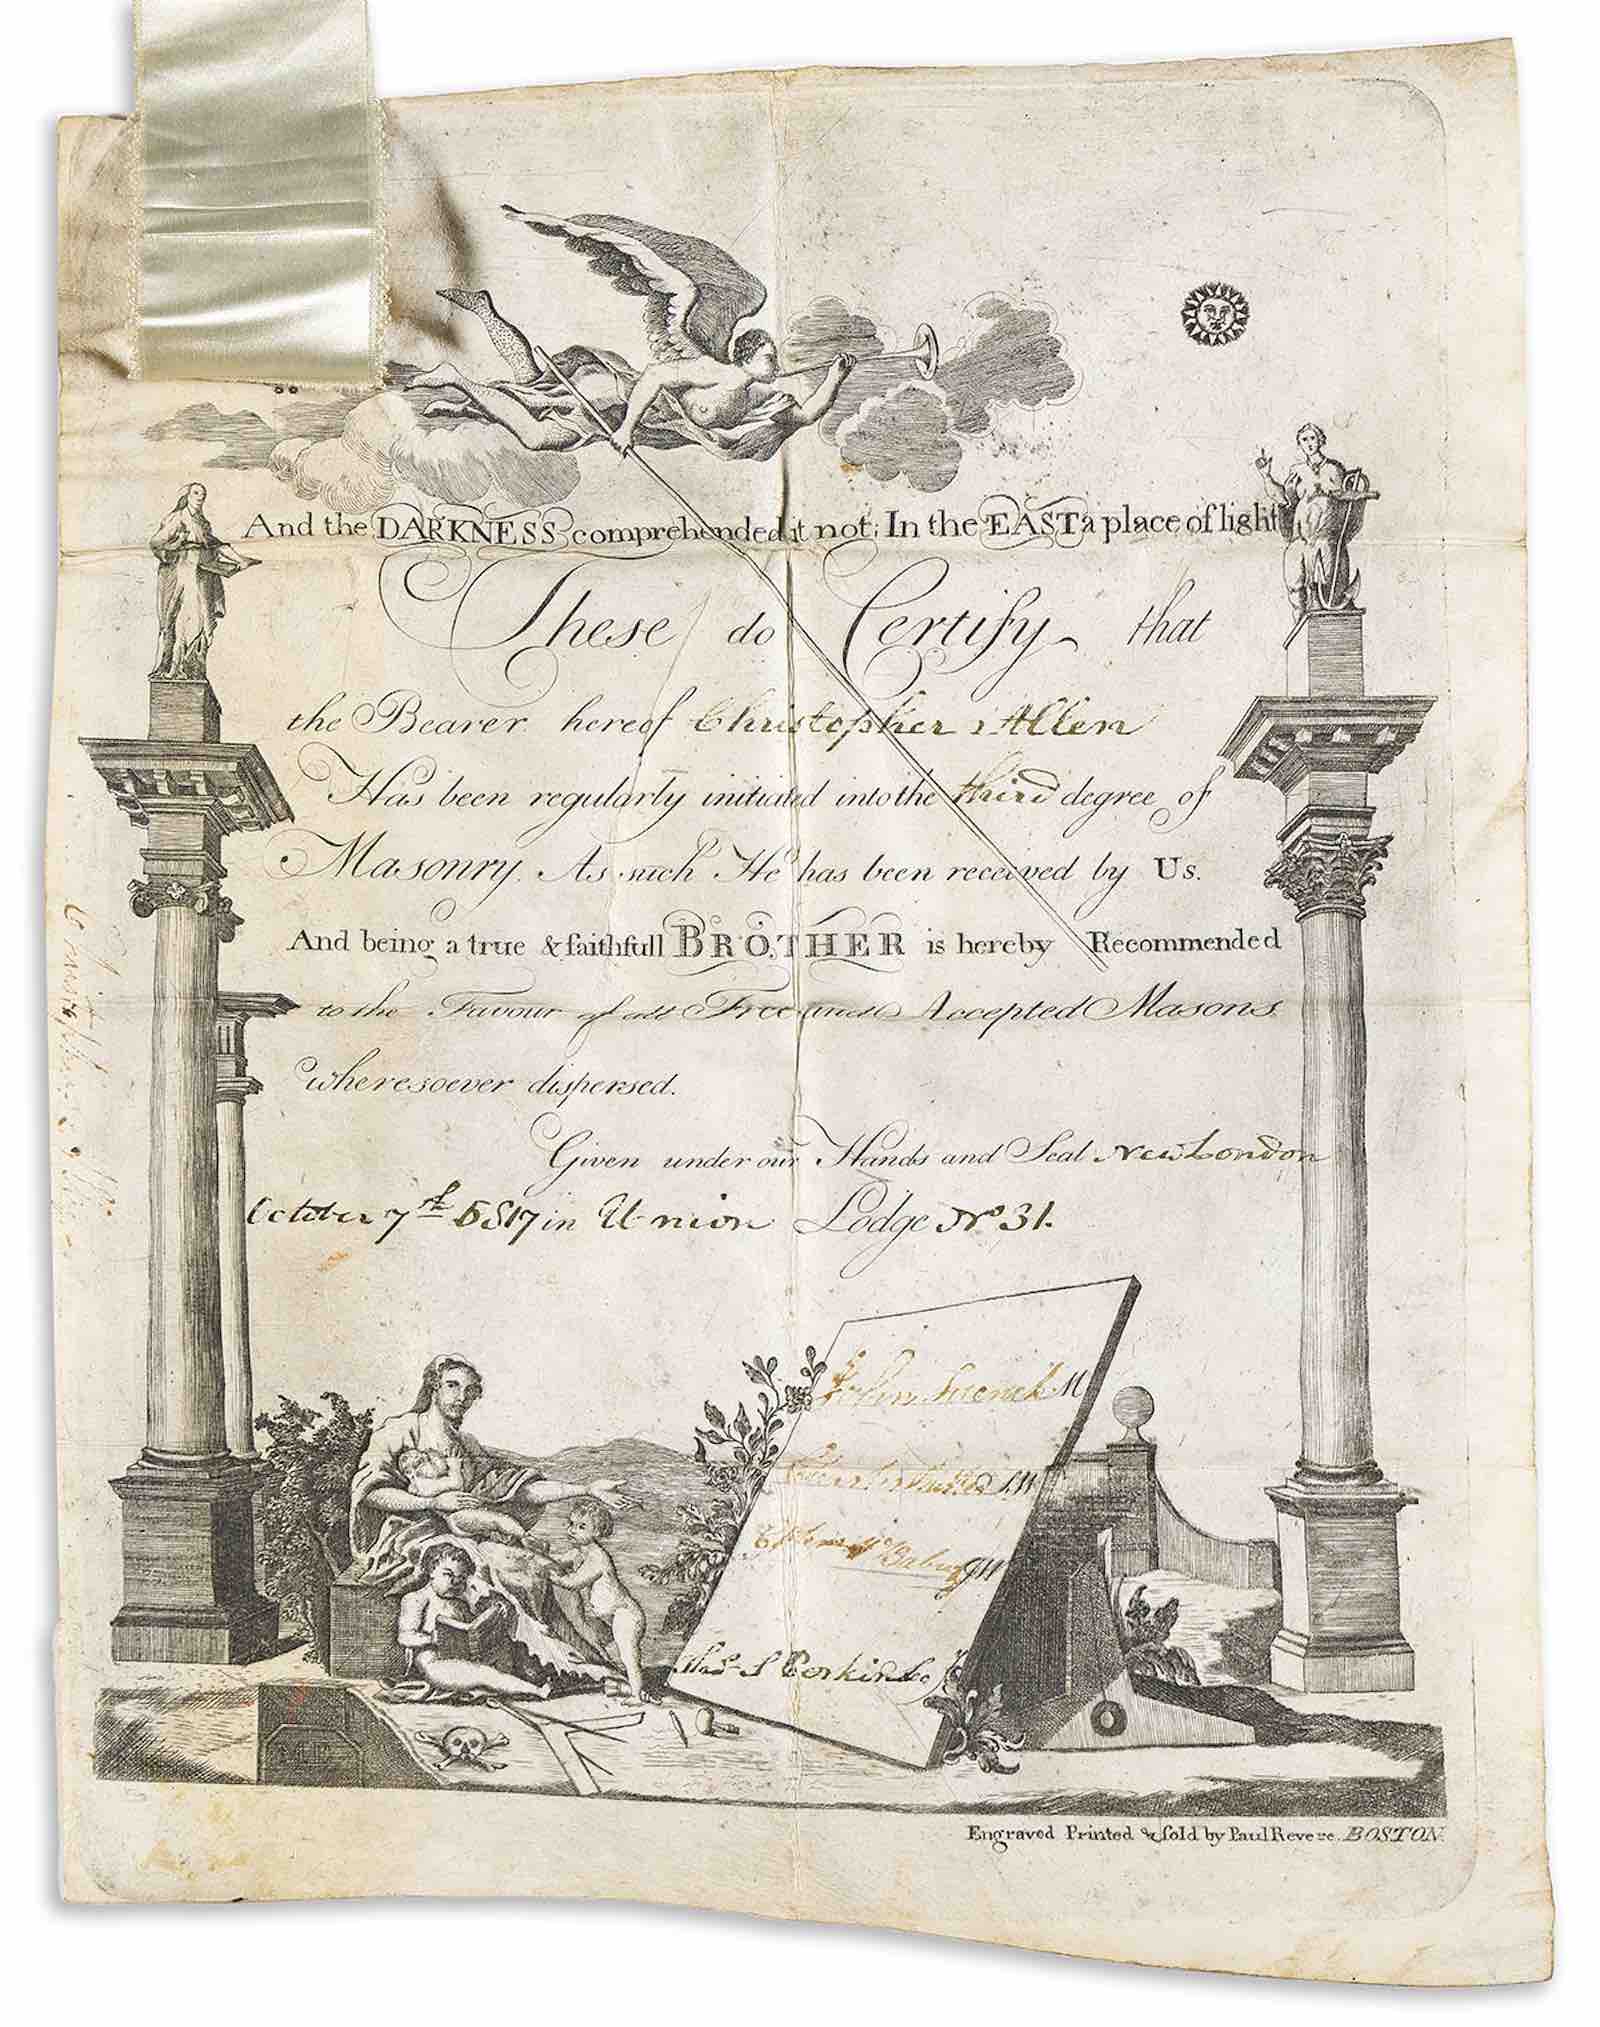 And the DARKNESS comprehended it not; In the EAST a place of light
These do Certify that
the Bearer hereof Christopher Allen
Has been regularly initiated into the third degree of
Masonry. As such He has been received by Us.
And being a true & faithfull BROTHER is hereby Recommended
to the Favour of all Free and Accepted Masons
wheresoever dispersed.
Given under our Hands and Seal New London
October 7th 5817 in Union Lodge No 31.
John French M
S W
J W
S Perkins
Engraved Printed & Sold by Paul Revere. BOSTON.